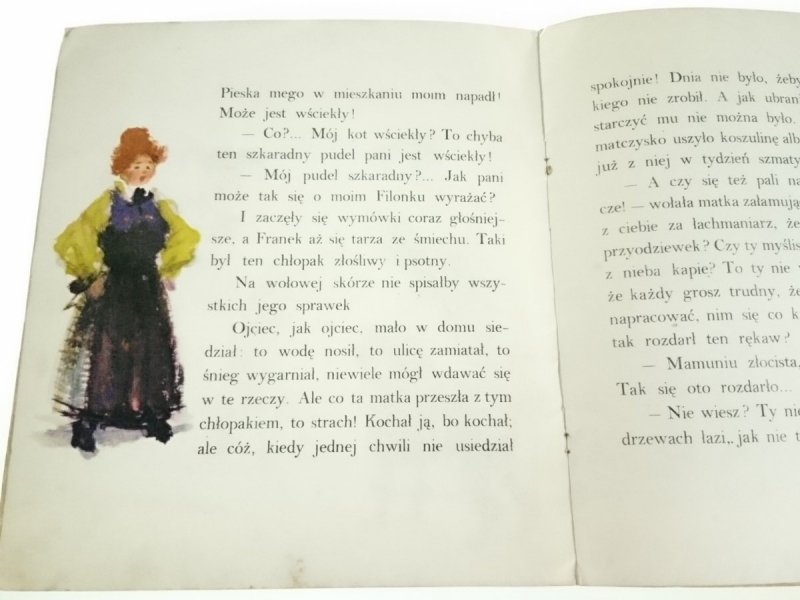 Pieska mego w mieszkaniu moim napadł!
Może jest wściekły!
— Co?... Mój kot wściekły? To chyba
ten szkaradny pudel pani jest wściekły!
— Mój pudel szkaradny?... Jak pani
może tak się o moim Filonku wyrażać?
I zaczęły się wymówki coraz głośniej-
sze, a Franek aż się tarza ze śmiechu. Taki
był ten chłopak złośliwy i psotny.
Na wołowej skórze nie spisałby wszy-
stkich jego sprawek
Ojciec, jak ojciec, mało w domu sie-
dział: to wodę nosił, to ulicę zamiatał, to
śnieg wygarniał, niewiele mógł wdawać się
w te rzeczy. Ale co ta matka przeszła z tym
chłopakiem, to strach! Kochał ją, bo kochał;
ale cóż, kiedy jednej chwili nie usiedział
spokojnie! Dnia nie było, żeby
kiego nie zrobił. A jak ubrani
starczyć mu nie można było.
matczysko uszyło koszulinę alb
już z niej w tydzień szmaty
— A czy się też pali na
cze! — wołała matka załamując
z ciebie za łachmaniarz, że
przyodziewek? Czy ty myślis
z nieba kapie? To ty nie
że każdy grosz trudny, że
napracować, nim się co k
tak rozdarł ten rękaw?
— Mamuniu złocista,
Tak się oto rozdarło...
— Nie wiesz? Ty nie
drzewach łazi, jak nie t